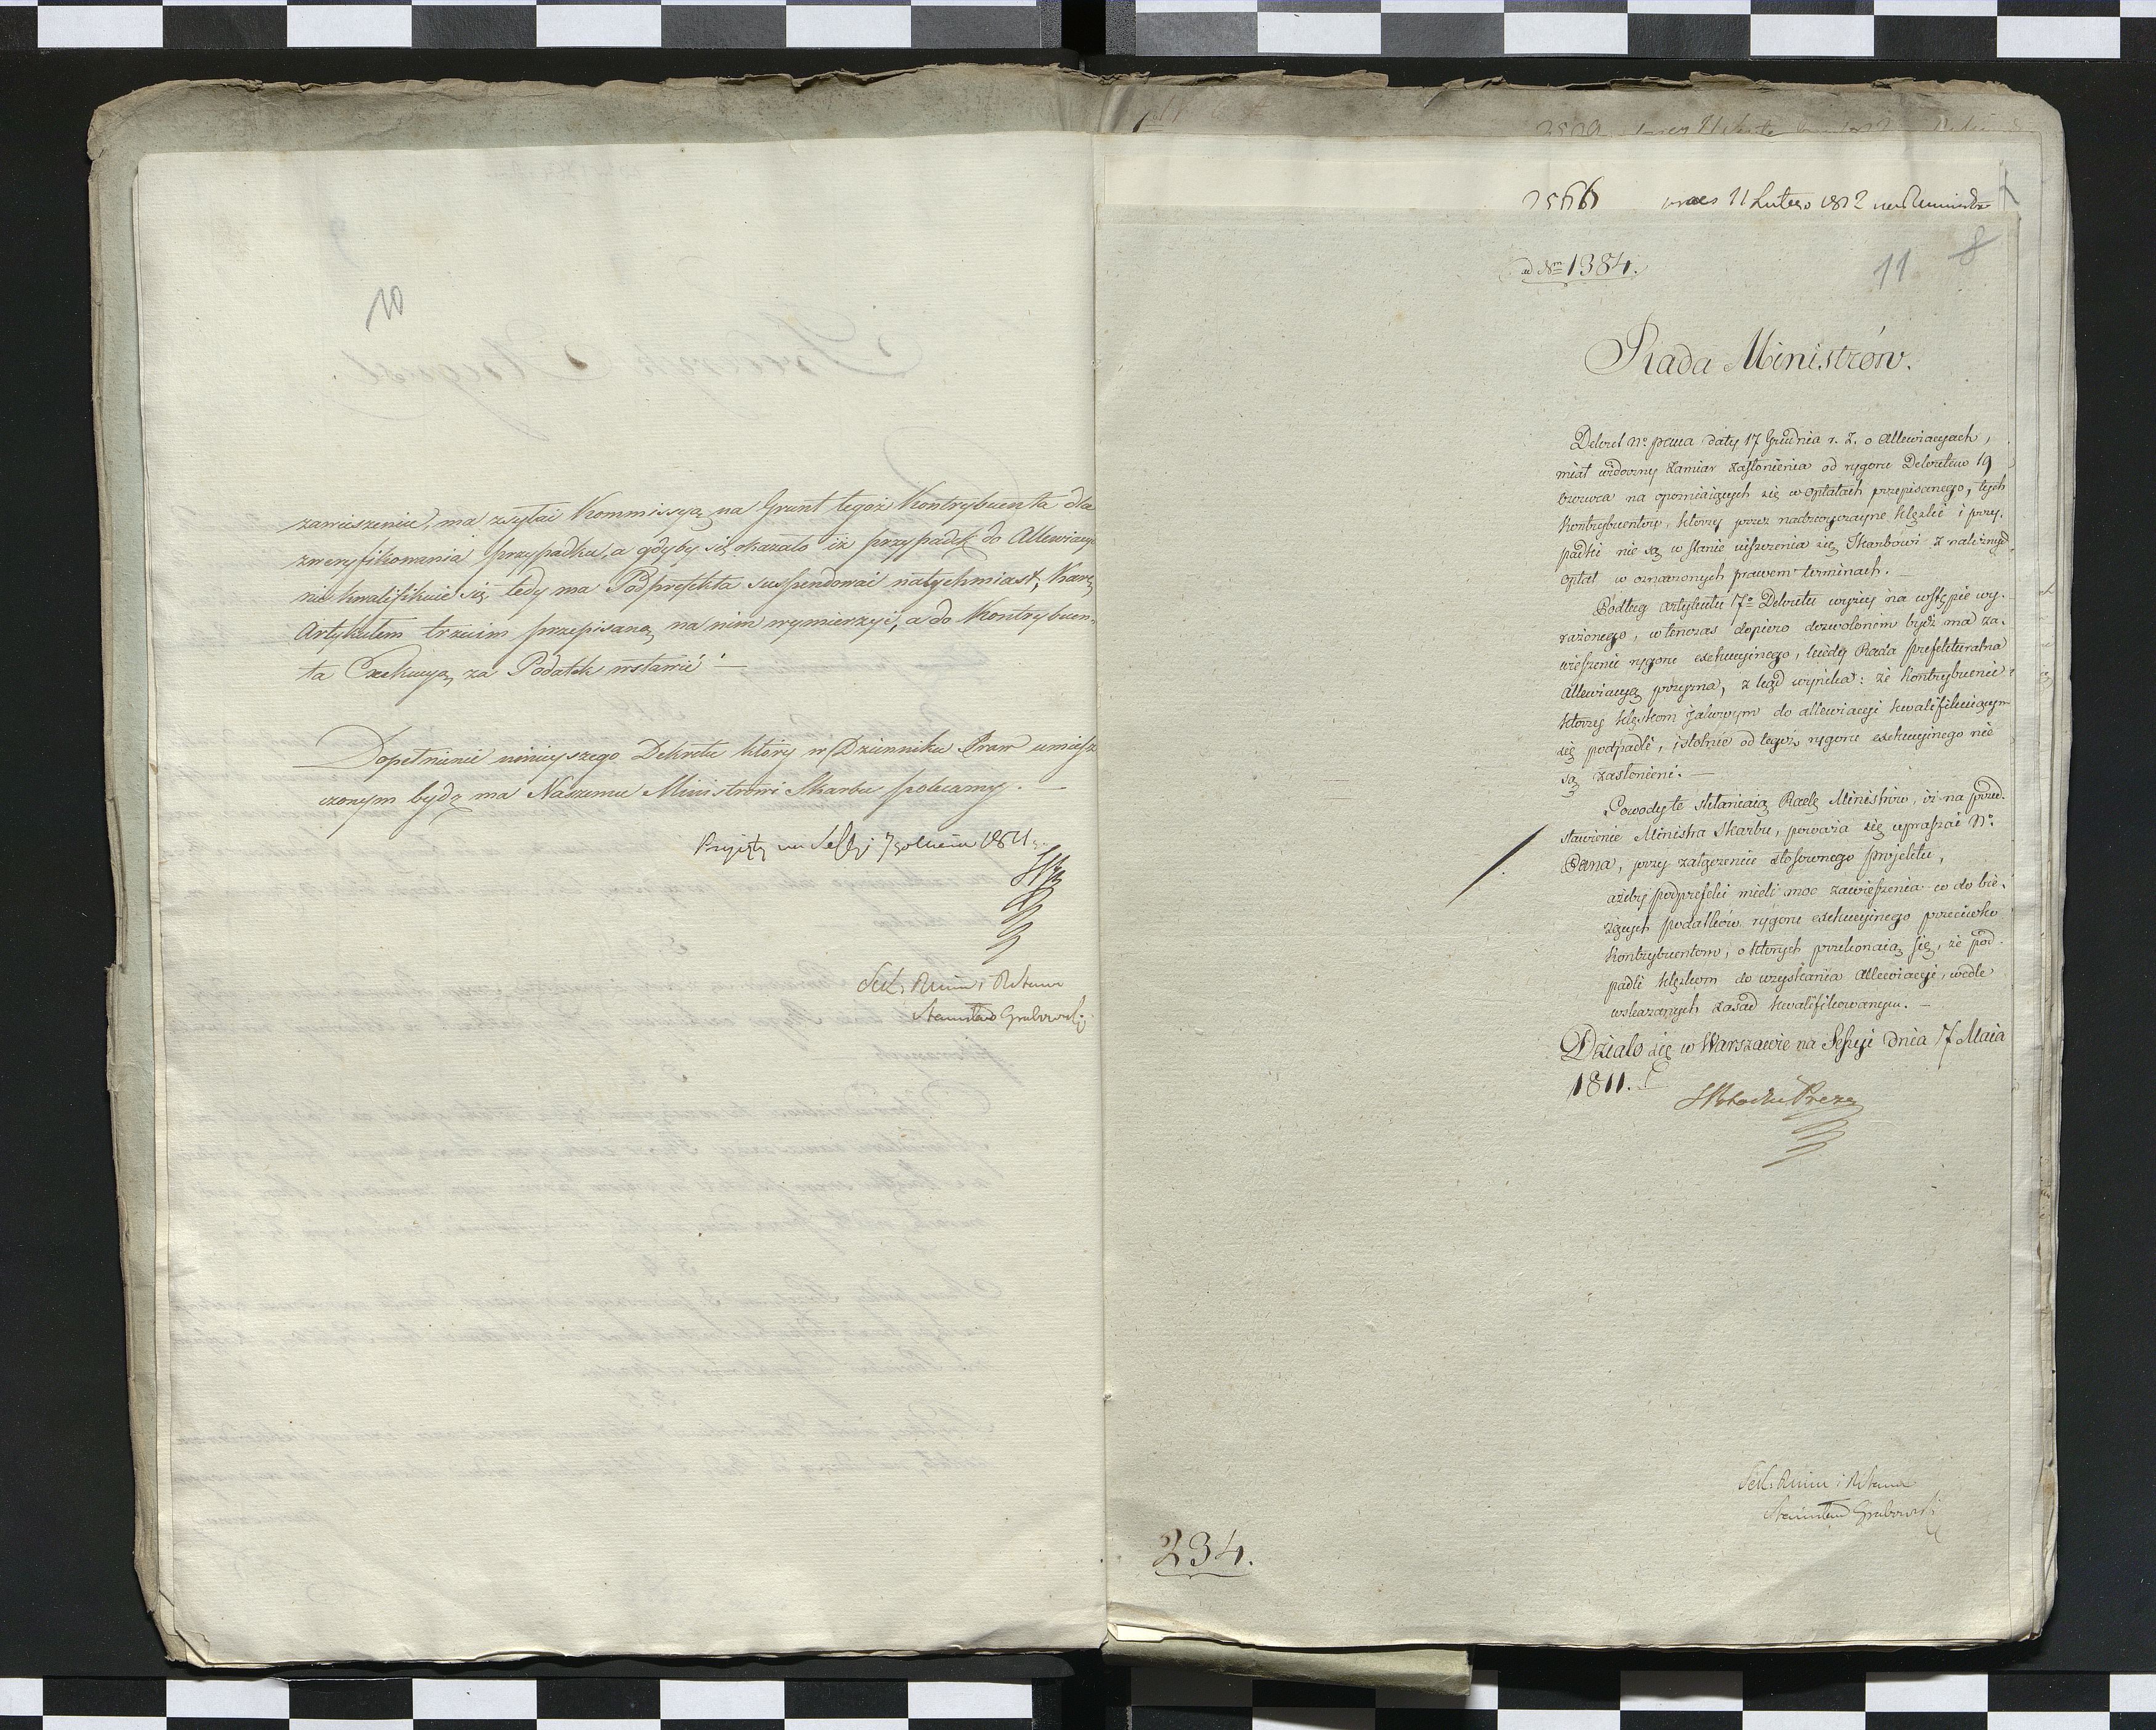 10
zawieszeniu, ma zsyłać Kommissyą na Grunt tegoż Kontrybuenta dla
zweryfikowania przypadku, a gdyby się okazało iż przypadek do Allewiacyi
nie kwalifikuie się, tedy ma Podprefekta suspendować natychmiast, Karę
Artykułem trzecim przepisaną na nim wymierzyć, a do Kontrybuen-
ta Exekucyą za Podatek wstawić —
Dopełnienie ninieyszego Dekretu który w Dzienniku Praw umiesz
czonym bydź ma Naszemu Ministrowi Skarbu polecamy. —
Przyięty na Sessyi 7 1811
Sek: Rmin i RStanu
Stanisław Grabowski
2566 praes 11 Lutego 1812
ad Nm 1384.
11 8
Rada Ministrów.
Dekret No. pana daty 17 Grudnia r. z. o Allewiacyach,
miał widoczny zamiar zasłonienia od rygoru Dekretem 19
Czerwca na opóźniaiących się w opłatach przepisanego, tych
Kontrybuentów, którzy przez nadzwyczayne klęski i przy-
padki nie są w stanie uiszczenia się Skarbowi z należnych
opłat w oznaczonych prawem terminach. —
Podług artykułu 17o Dekretu wyżey na wstępie wy-
rażonego, wtenczas dopiero dozwolonem bydź ma za-
wieszenie rygoru exekucyinego, kiedy Rada prefekturalna
allewiacyą przyzna, z tąd wynika: że kontrybuenci
którzy klęskom jakowym do allewiacyi kwalifikuiącym
się podpadli, istotnie od tegoż rygoru exekucyinego nie
są zasłonieni. —
Powody te skłaniaią Radę Ministrów, iż na przed-
stawienie Ministra Skarbu, poważa się upraszać No.
Pana, przy załączeniu stosownego projektu,
ażeby podprefekci mieli moc zawieszenia co do bie-
żących podatków rygoru exekucyinego przeciwko
kontrybuentom, o których przekonaią się, że pod-
padli klęskom do uzyskania allewiacyi, wedle
wskazanych zasad kwalifikowanym. —
Działo się w Warszawie na Sessyi dnia 17 Maia
1811.
SPotocki Prezes
Sek: Rmin i RStanu
Stanisław Grabowski
234.